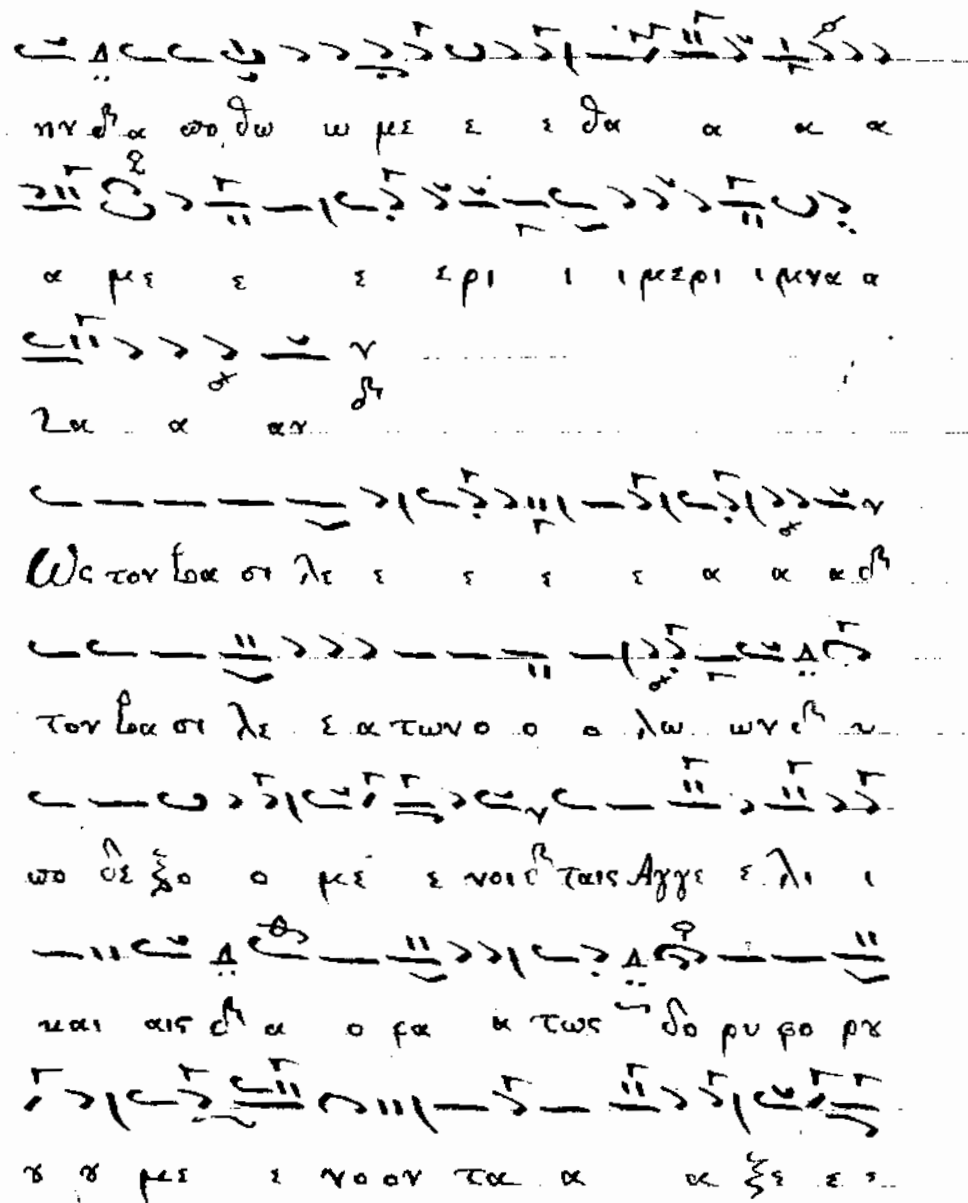 ην α πο θω ω με ε ε θα α α α
α με ε ε ερι ι ι μερι ιμνα α
α αν
Ως τον βα σι λε ε ε ε ε α α α
τον βα σι λε ε α των ο ο ο λω ων υ
πο δε ξο ο με ε νοι ταις Αγγε ε λι ι
και αις α ο ρα α τως δο ρυ φο ρȣ
ȣ ȣ με ε νο ον τα α α ξε ε ε